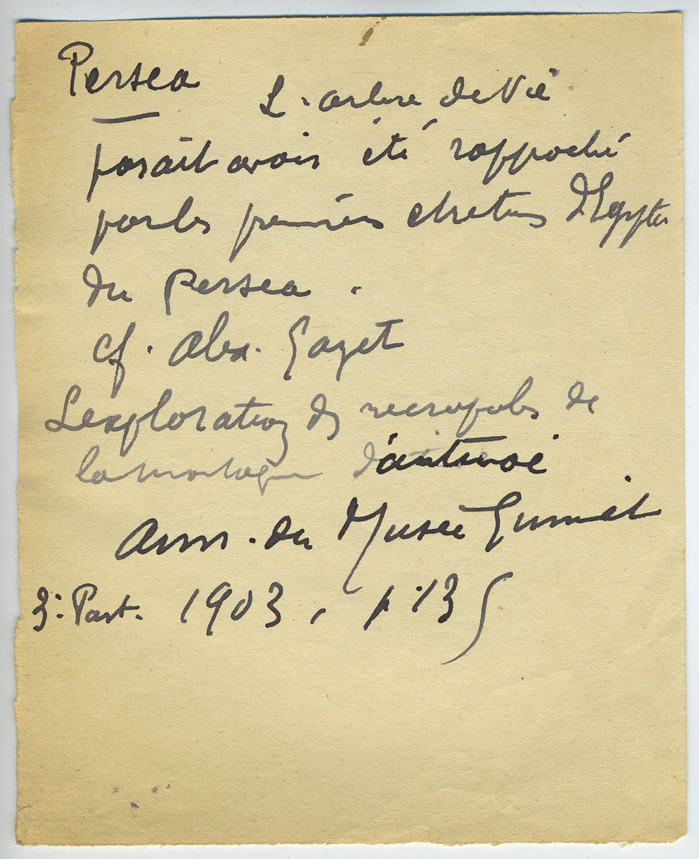 Persea L'arbre de Vie
paraît avoir été rapproché
par les premiers chretiens d'Egypte
du persea.
cf. Alex. Gayet
L'exploration des necropoles de
la montagne d'antinoé
Ann. du Musée Guimet
3e Part. 1903, p. 135